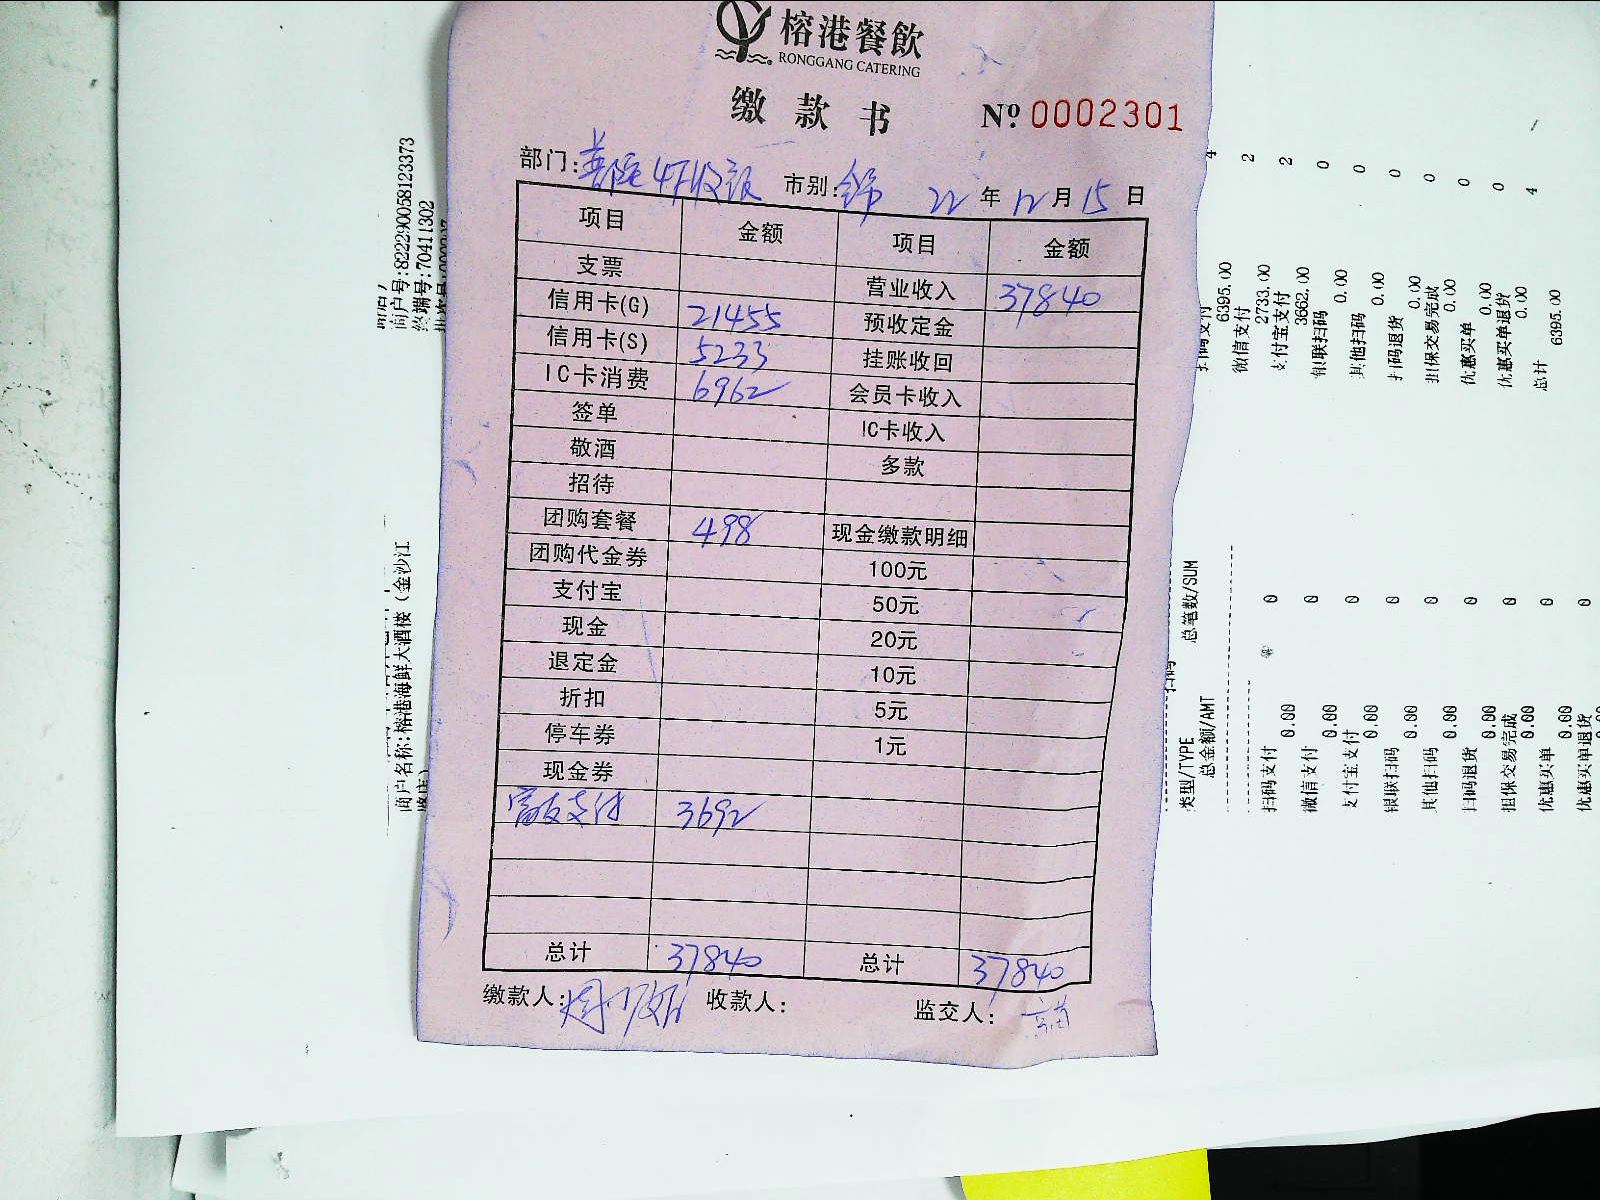 榕港餐飲
RONGGANG CATERING
缴款书 Nº 0002301
部门: 普陀4F收银 市别: 全 22 年 12 月 15 日
项目 金额 项目 金额
支票 营业收入 37840
信用卡(G) 21455 预收定金
信用卡(S) 5233 挂账收回
IC卡消费 6962 会员卡收入
签单 IC卡收入
敬酒 多款
招待
团购套餐 498 现金缴款明细
团购代金券 100元
支付宝 50元
现金 20元
退定金 10元
折扣 5元
停车券 1元
现金券
富友支付 3692
总计 37840 总计 37840
缴款人: 收款人: 监交人:
商户号:822290058123373
终端号:70411302
商户名称:榕港海鲜大酒楼（金沙江
4
扫码支付
6395.00
2
微信支付
2733.00
2
支付宝支付
3662.00
0
银联扫码
0.00
0
其他扫码
0.00
0
扫码退货
0.00
0
担保交易完成
0.00
0
优惠买单
0.00
0
优惠买单退货
0.00
4
总计
6395.00
扫码
类型/TYPE 总笔数/SUM
总金额/AMT
扫码支付 0
0.00
微信支付 0
0.00
支付宝支付 0
0.00
银联扫码 0
0.00
其他扫码 0
0.00
扫码退货 0
0.00
担保交易完成 0
0.00
优惠买单 0
0.00
优惠买单退货 0